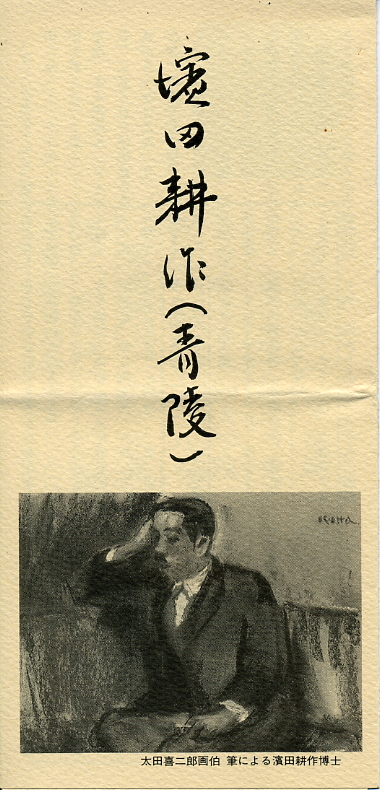 濱田耕作(青陵)
太田喜二郎画伯 筆による濱田耕作博士